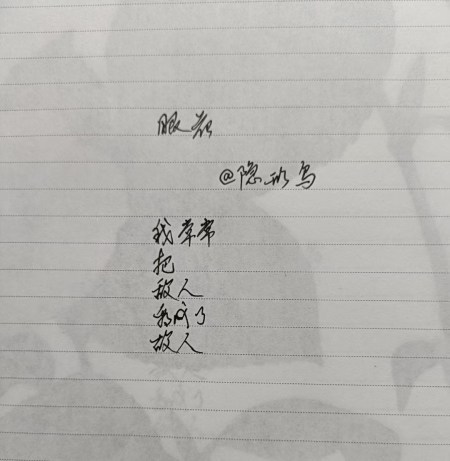 眼花
@隐形鸟
我常常
把
敌人
看成了
故人